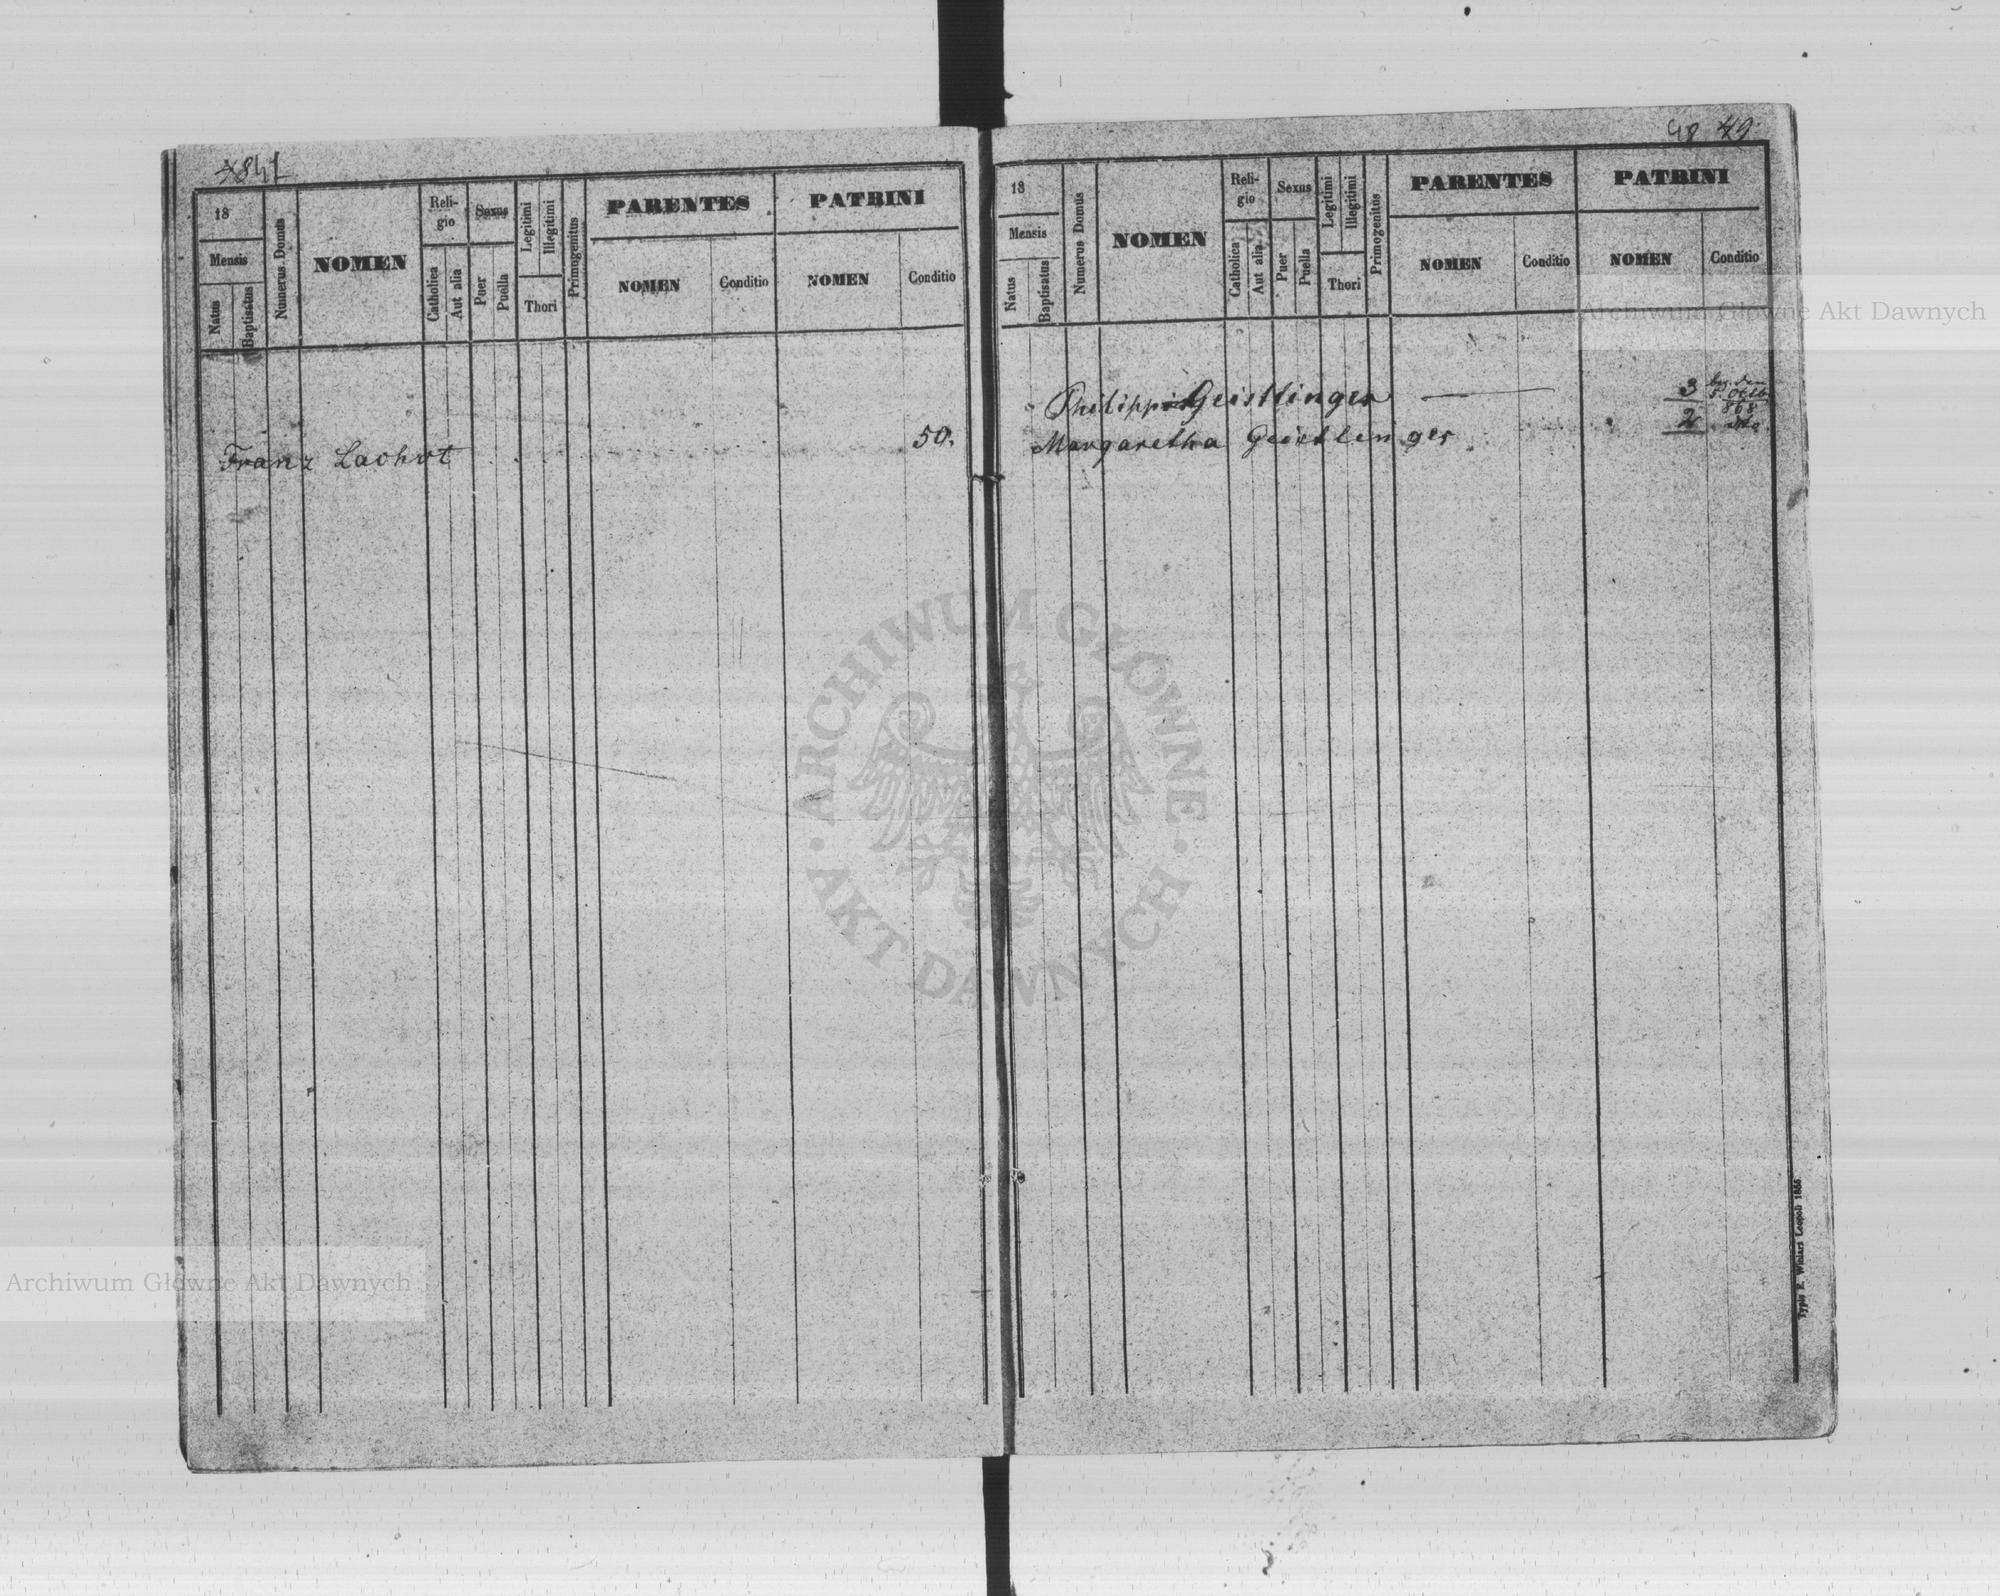 18
Mensis
Natus
Baptisatus
Numerus Domus
NOMEN
Reli-
gio
Catholica
Aut alia
Sexus
Puer
Puella
Legitimi
Illegitimi
Thori
Primogenitus
PARENTES
NOMEN
Conditio
PATRINI
NOMEN
Conditio
Franz Lachot 50.
48 49.
18
Mensis
Natus
Baptisatus
Numerus Domus
NOMEN
Reli-
gio
Catholica
Aut alia
Sexus
Puer
Puella
Legitimi
Illegitimi
Thori
Primogenitus
PARENTES
NOMEN
Conditio
PATRINI
NOMEN
Conditio
Philipp Geistlinger 3
868
Margaretha Geistlinger 2
Typis E. Winiarz Leopoli 1856
ARCHIWUM GŁÓWNE AKT DAWNYCH
Archiwum Główne Akt Dawnych
Archiwum Główne Akt Dawnych